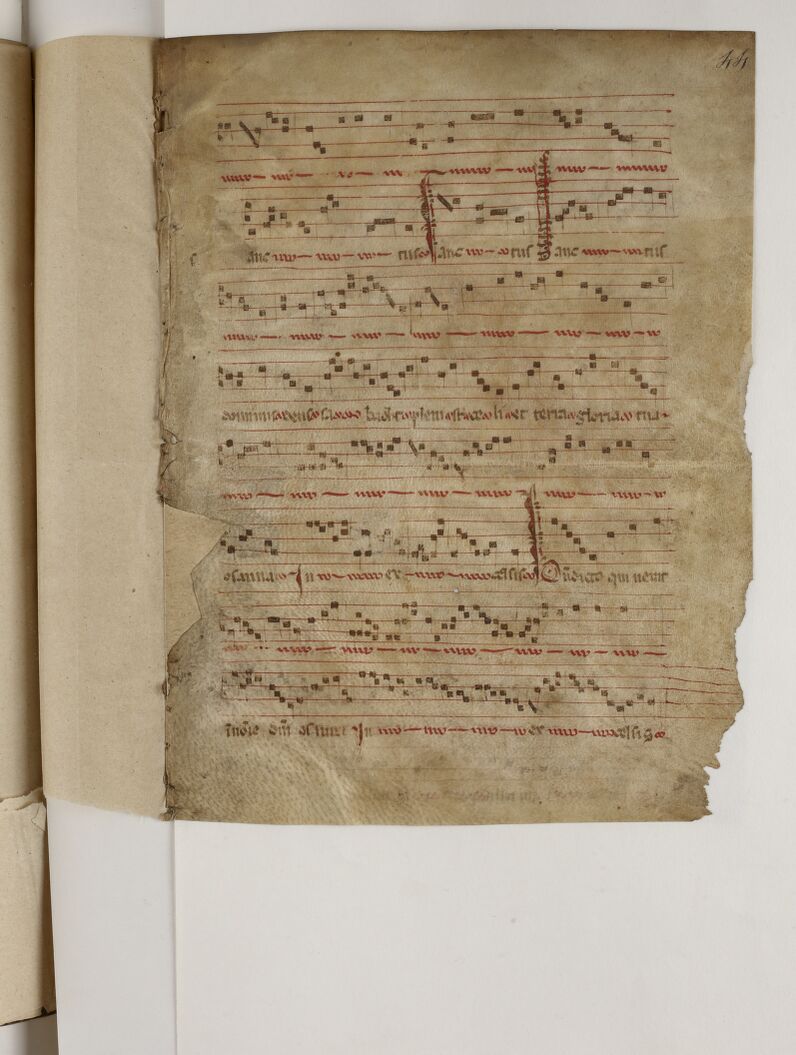 44
anc tus anc tus anc tus
dominus deus sa ba oth pleni st ce li et terra gloria tua
osanna In ex celsis Bńdictꝰ qui uenit
In noīe dn̄i In ex celsis